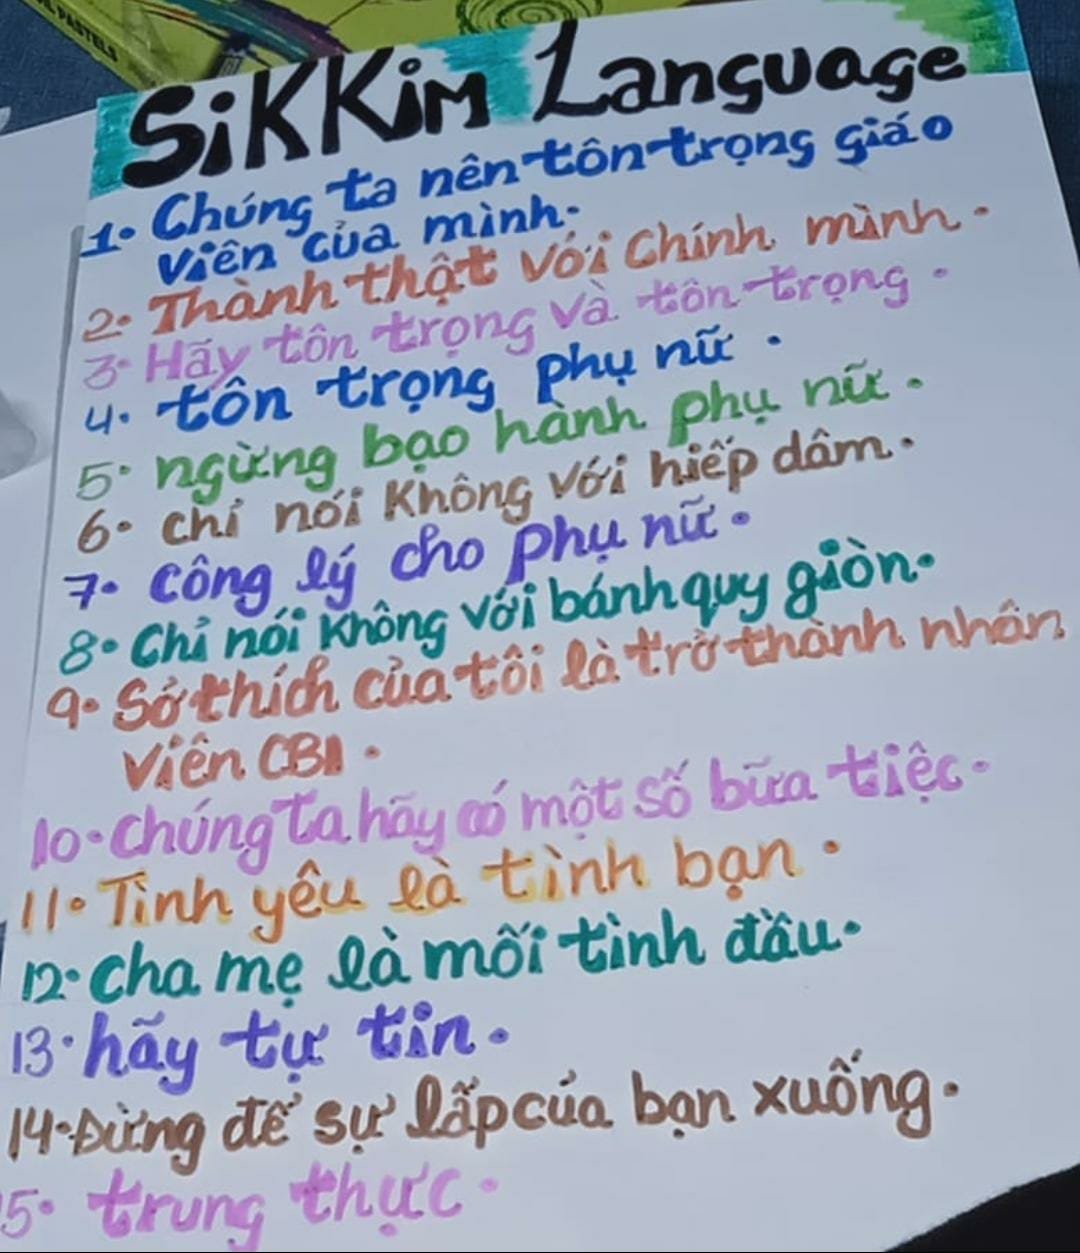 SiKKiM Language
1. Chúng ta nên tôn trọng giáo
viên của mình.
2. Thành thật với Chính mình.
3. Hãy tôn trọng và tôn trọng.
4. tôn trọng phụ nữ.
5. ngừng bạo hành phụ nữ.
6. chỉ nói Không với hiếp dâm.
7. công lý cho phụ nữ.
8. Chỉ nói không với bánh quy giòn.
9. Sở thích của tôi là trở thành nhân
viên CBI.
10. chúng ta hãy có một số bữa tiệc.
11. Tình yêu là tình bạn.
12. cha mẹ là mối tình đầu.
13. hãy tự tin.
14. Đừng để sự lấp của bạn xuống.
15. trung thực.